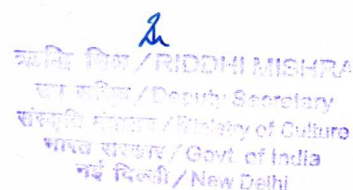 ऋद्धि मिश्र / RIDDHI MISHRA
उप सचिव / Deputy Secretary
संस्कृति मंत्रालय / Ministry of Culture
भारत सरकार / Govt. of India
नई दिल्ली / New Delhi